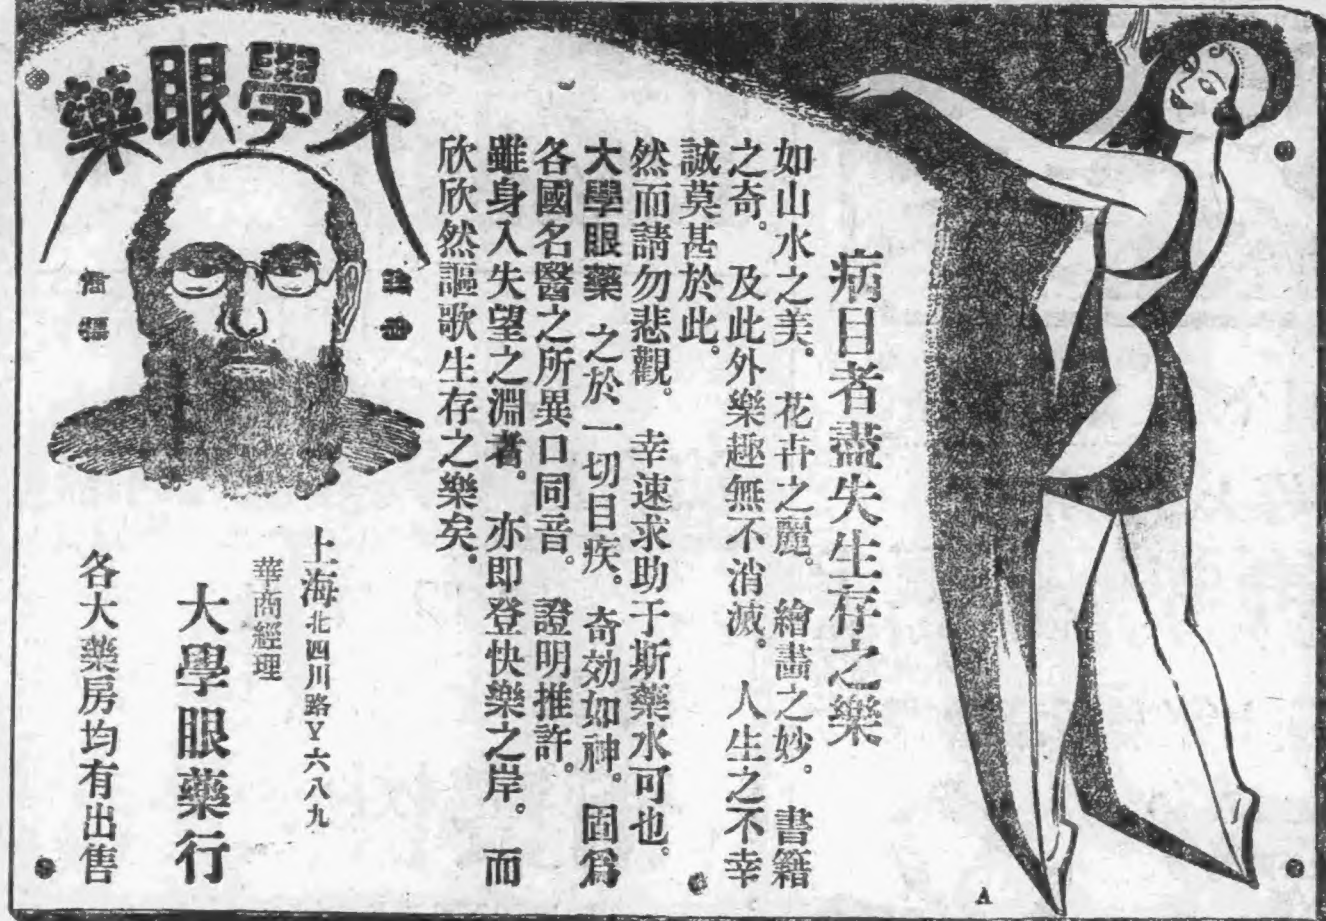 病目者盡失生存之樂
如山水之美。花卉之麗。繪畵之妙。書籍
之奇。及此外樂趣無不消滅。人生之不幸
誠莫甚於此。
然而請勿悲觀。幸速求助于斯藥水可也。
大學眼藥 之於一切目疾。奇効如神。固爲
各國名醫之所異口同音。證明推許。
雖身入失望之淵者。亦即登快樂之岸。而
欣欣然謳歌生存之樂矣。
大學眼藥
上海北四川路Y六八九
華商經理
大學眼藥行
各大藥房均有出售
A